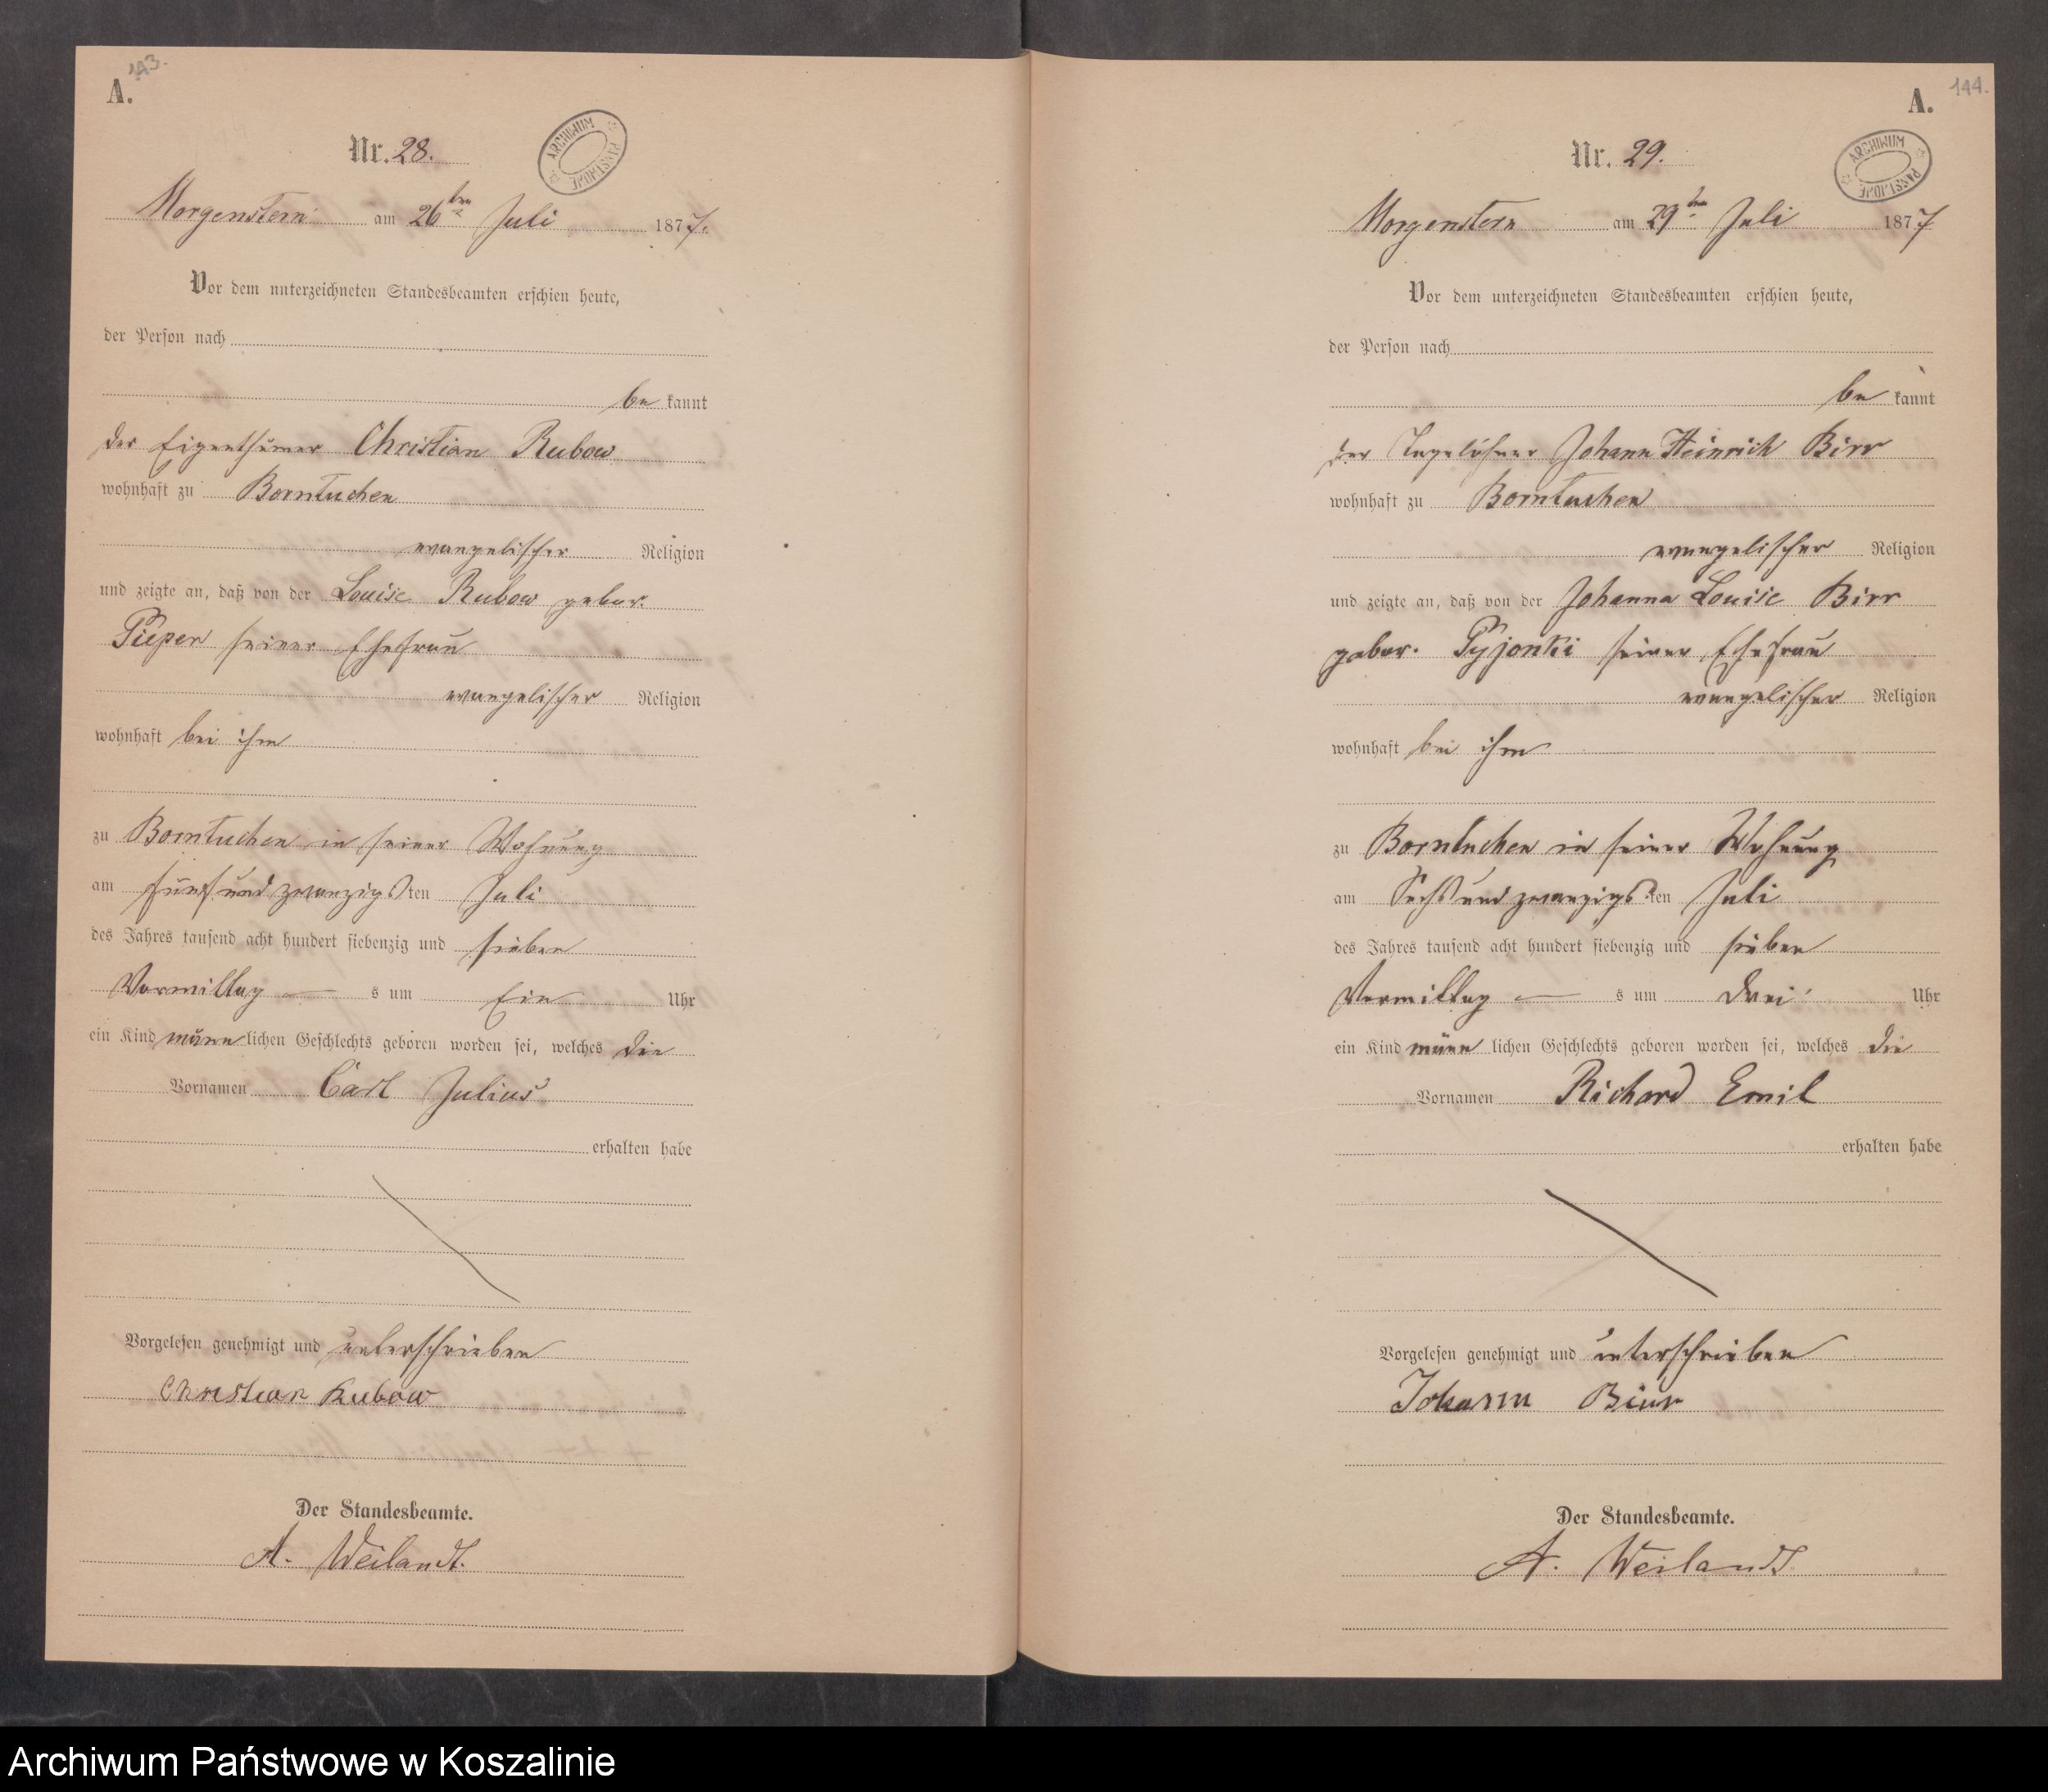 A.
143.
Nr. 28.
ARCHIWUM PAŃSTWOWE
Morgenstern am 26ten Juli 1877.
Vor dem unterzeichneten Standesbeamten erschien heute,
der Person nach
be kannt
der Eigenthümer Christian Rubow
wohnhaft zu Borntuchen
evangelischer Religion
und zeigte an, daß von der Louise Rubow gebor.
Pieper seiner Ehefrau
evangelischer Religion
wohnhaft bei ihm
zu Borntuchen in seiner Wohnung
am fünfundzwanzigsten Juli
des Jahres tausend acht hundert siebenzig und sieben
Vormittag — s um Ein Uhr
ein Kind männlichen Geschlechts geboren worden sei, welches die
Vornamen Carl Julius
erhalten habe
Vorgelesen genehmigt und unterschrieben
Christian Rubow
Der Standesbeamte.
A. Weilandt.
A.
144.
Nr. 29.
ARCHIWUM PAŃSTWOWE
Morgenstern am 29ten Juli 1877
Vor dem unterzeichneten Standesbeamten erschien heute,
der Person nach
be kannt
der Tagelöhner Johann Heinrich Birr
wohnhaft zu Borntuchen
evangelischer Religion
und zeigte an, daß von der Johanna Louise Birr
gebor. Pyjonki seiner Ehefrau
evangelischer Religion
wohnhaft bei ihm
zu Borntuchen in seiner Wohnung
am Sechsundzwanzigsten Juli
des Jahres tausend acht hundert siebenzig und sieben
Vormittag — s um Drei Uhr
ein Kind männlichen Geschlechts geboren worden sei, welches die
Vornamen Richard Emil
erhalten habe
Vorgelesen genehmigt und unterschrieben
Johann Birr
Der Standesbeamte.
A. Weilandt.
Archiwum Państwowe w Koszalinie